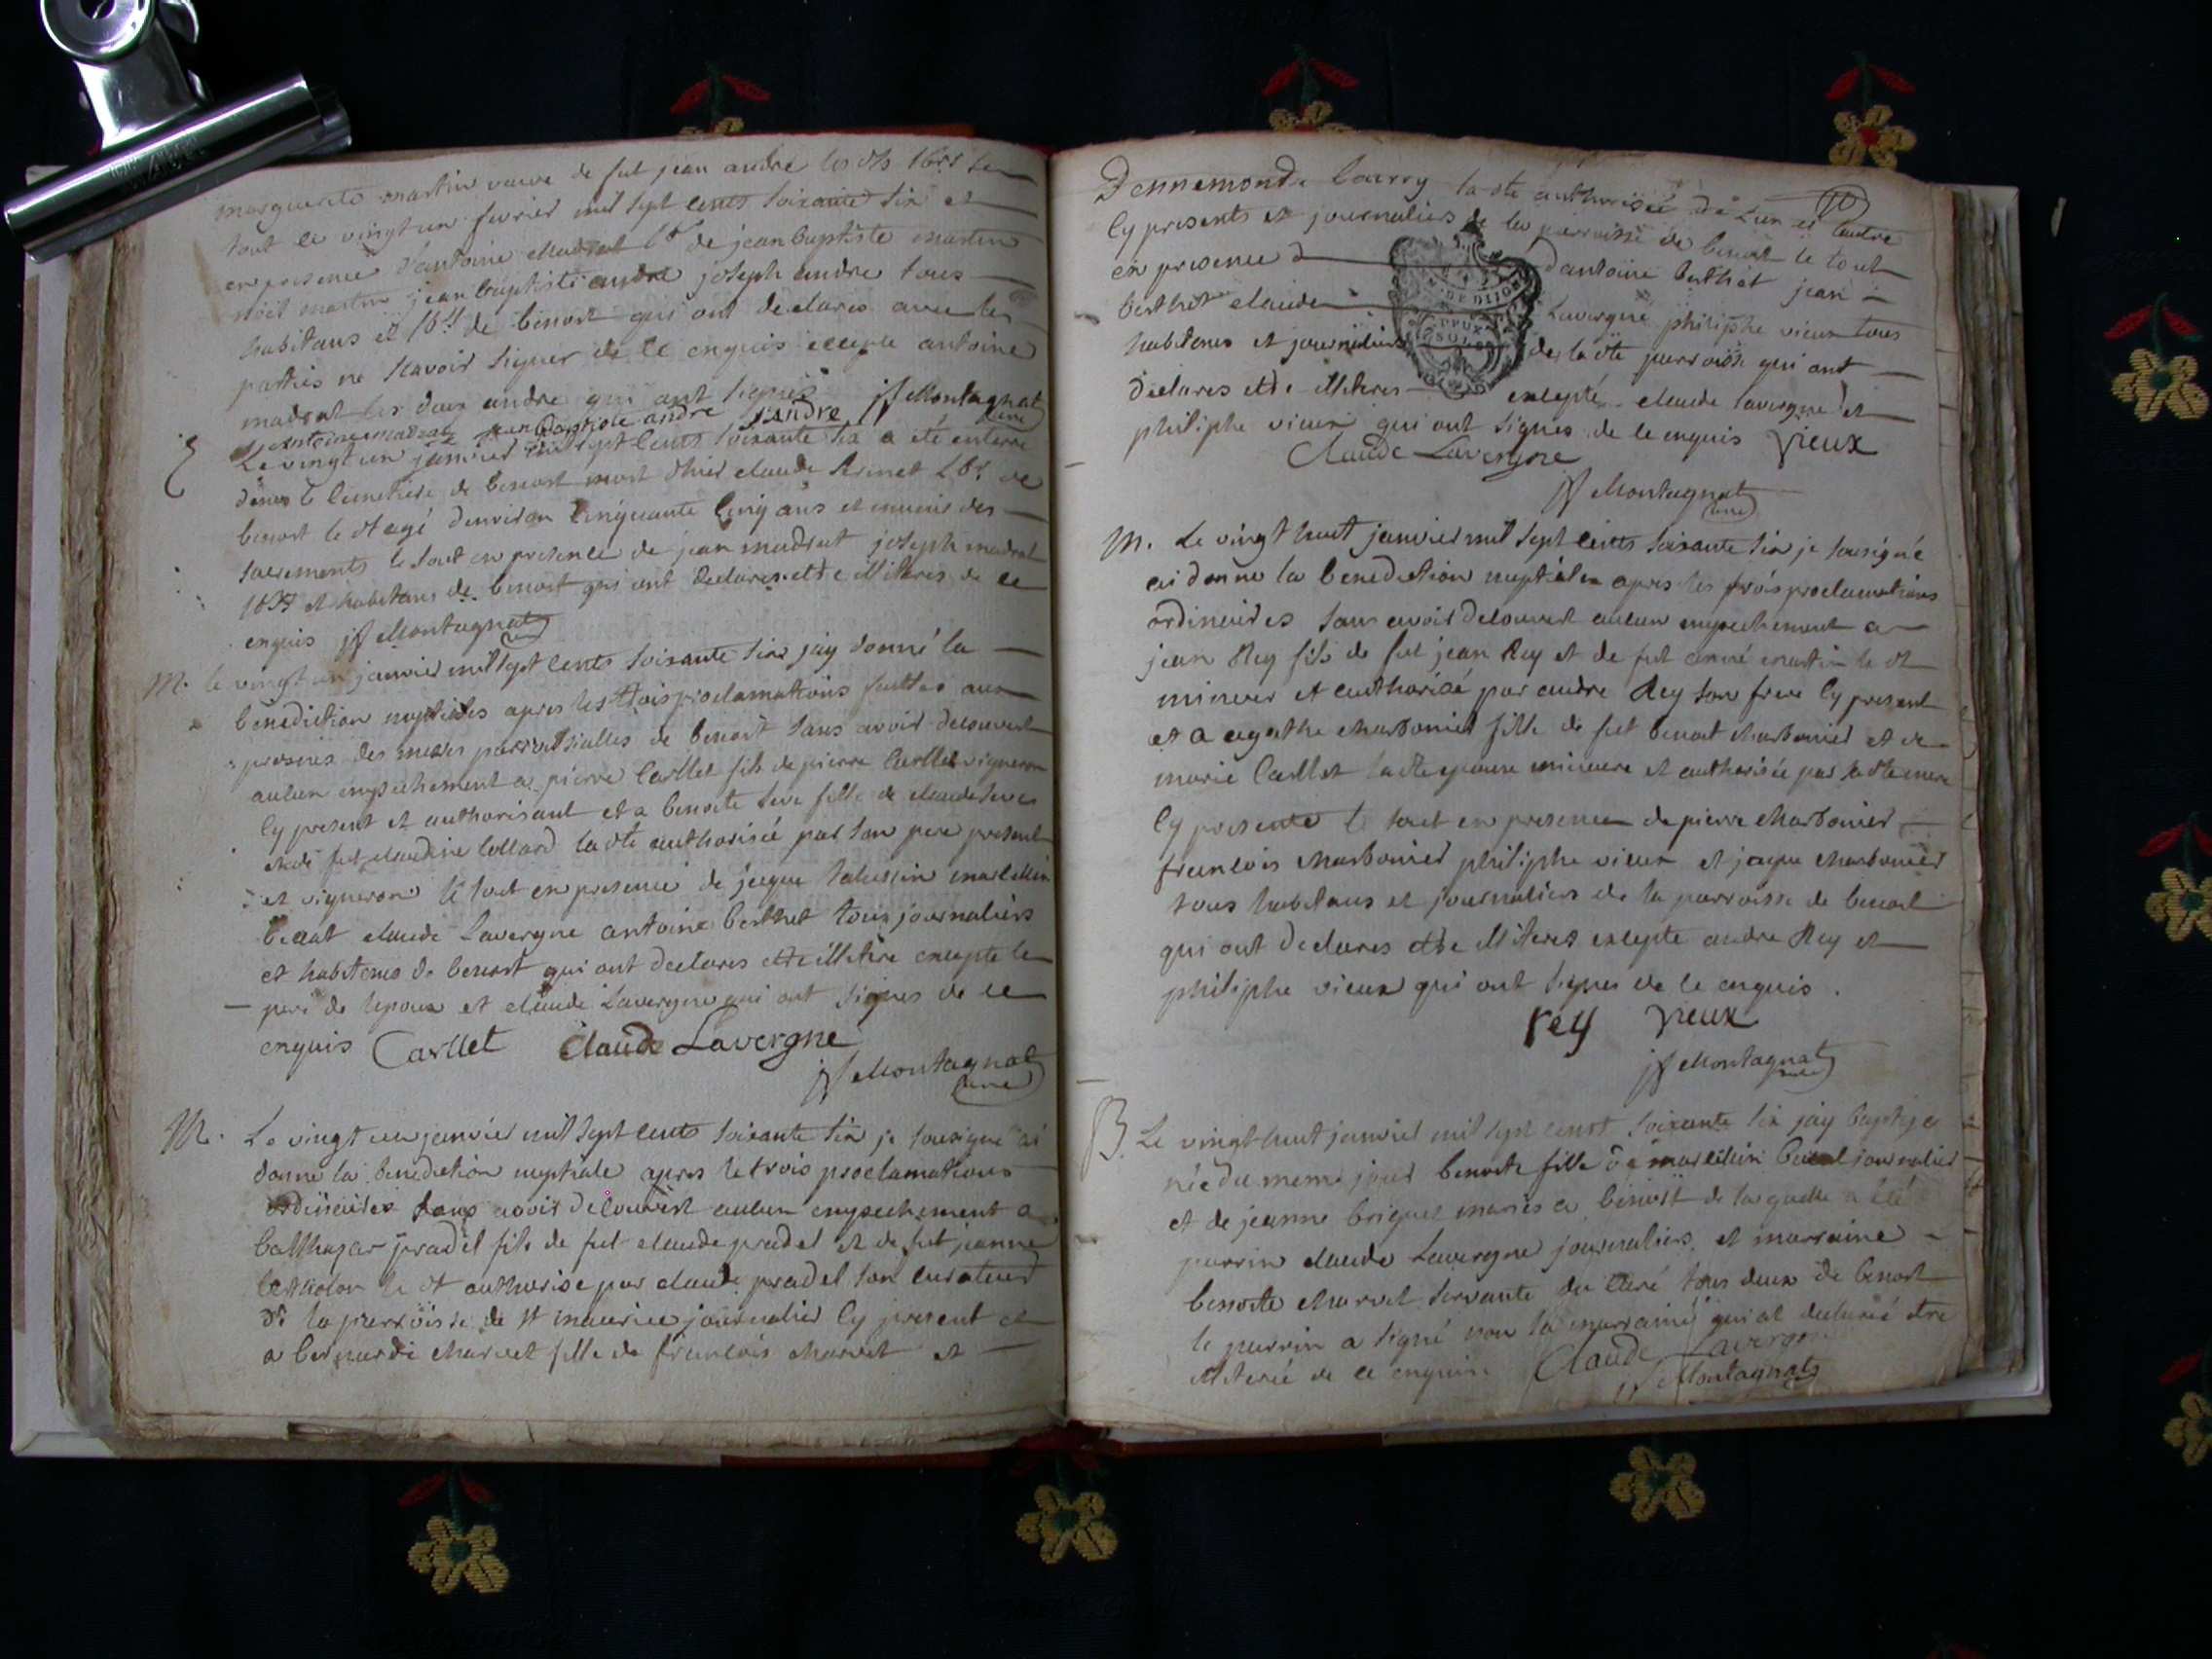 marguerite martin vueve de fut jean andre les dts lbrs le
tout ce vingt un fevrier mil sept cents soixante six et
en presence d'antoine madrat lbr de jean baptiste martin
noel martin jean baptiste andre joseph andre tous
habitans et lbrs de benost qui ont declares avec les
parties ne scavoir signer de ce enquis excepte antoine
madrat les deux andre qui ont signes jf Montagnat
curé
antoine madrat jean baptiste andre j andre
Le vingt un janvier mil sept cents soixante six a eté enterré
dans le cimetiere de benost mort hier claude lbr de
benost le dt agé denviron cinquante cinq ans et muni des
sacrements le tout en presence de jean madrat joseph madrat
lbrs et habitans de benost qui ont declares etre illiteres de ce
enquis jf Montagnat
curé
M. le vingt un janvier mil sept cents soixante six jay donné la
benediction nuptiales apres les trois proclamations faittes aux
prosnes des messes parroissialles de benost sans avoir decouvert
aucun empechement a pierre Carllet fils de pierre Carllet vigneron
cy present et authorisant et a benoite seve fille de claude seve
et de fut claudine collard la dte authorisée par son pere present
et vigneron le tout en presence de jaque marcellin
claude Lavergne antoine berthet tous journaliers
et habitans de benost qui ont declares etre illitere excepte le
pere de lepoux et claude Lavergne qui ont signes de ce
enquis Carllet Claude Lavergne
jf Montagnat
curé
M. Le vingt un janvier mil sept cents soixante six je sousigné ai
donné la benediction nuptiale apres le trois proclamations
ordinaires sans avoir decouvert aucun empechement a
balthazar pradel fils de fut claude pradel et de fut jeanne
le dt authorise par claude pradel son curateur
de la parroisse de st maurice journalier cy present et
a bernarde charvet fille de francois charvet et
Dennemonde la dte authorisée de lun et lautre
cy presents et journaliers de la parroisse de benost le tout
en presence d antoine berthet jean
berthet claude Lavergne philiphe vieux tous
habitans et journaliers de la dte parroisse qui ont
declares etre illiteres excepté claude lavergne et
philiphe vieux qui ont signes de ce enquis vieux
Claude Lavergne
jf Montagnat
curé
M. Le vingt huit janvier mil sept cents soixante six je sousigné
ai donne la benediction nuptiale apres les trois proclamations
ordinaires sans avoir decouvert aucun empechement a
jean Rey fils de fut jean Rey et de fut anné martin le dt
mineur et authorisé par andre Rey son frere cy present
et a agathe charbonier fille de fut benoit charbonier et de
marie Carllet la dte epouse mineure et authorisée par sa dte mere
cy presente le tout en presence de pierre charbonier
francois charbonier philiphe vieux et jaque charbonier
tous habitans et journaliers de la parroisse de benost
qui ont declares etre illiteres excepte andre Rey et
philiphe vieux qui ont signes de ce enquis.
rey vieux
jf Montagnat
curé
B. Le vingt huit janvier mil sept cents soixante six jay baptize
née du meme jour benoite fille de marcellin journalier
et de jeanne briquet mariés a benost de laquelle a eté
parrin claude Lavergne journaliers et marraine
benoite charvet servante du curé tous deux de benost
le parrin a signé non la marraine qui at declarée etre
illiterée de ce enquise Claude Lavergne
jf Montagnat